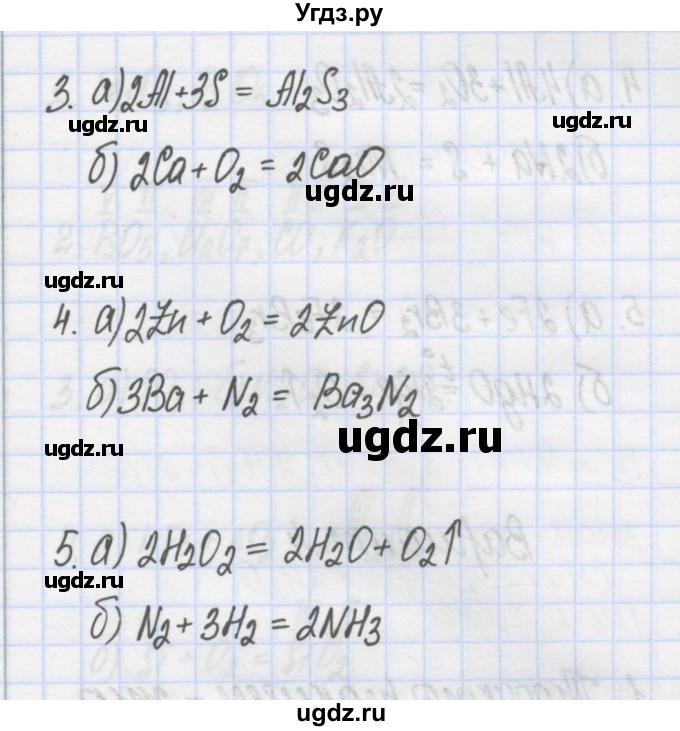 Угдз.ру
3. а) 2Al + 3S = Al₂S₃
ugdz.ru
б) 2Ca + O₂ = 2CaO
ugdz.ru
ugdz.ru
4. а) 2Zn + O₂ = 2ZnO
б) 3Ba + N₂ = Ba₃N₂
ugdz.ru
ugdz.ru
5. а) 2H₂O₂ = 2H₂O + O₂↑
ugdz.ru
б) N₂ + 3H₂ = 2NH₃
ugdz.ru